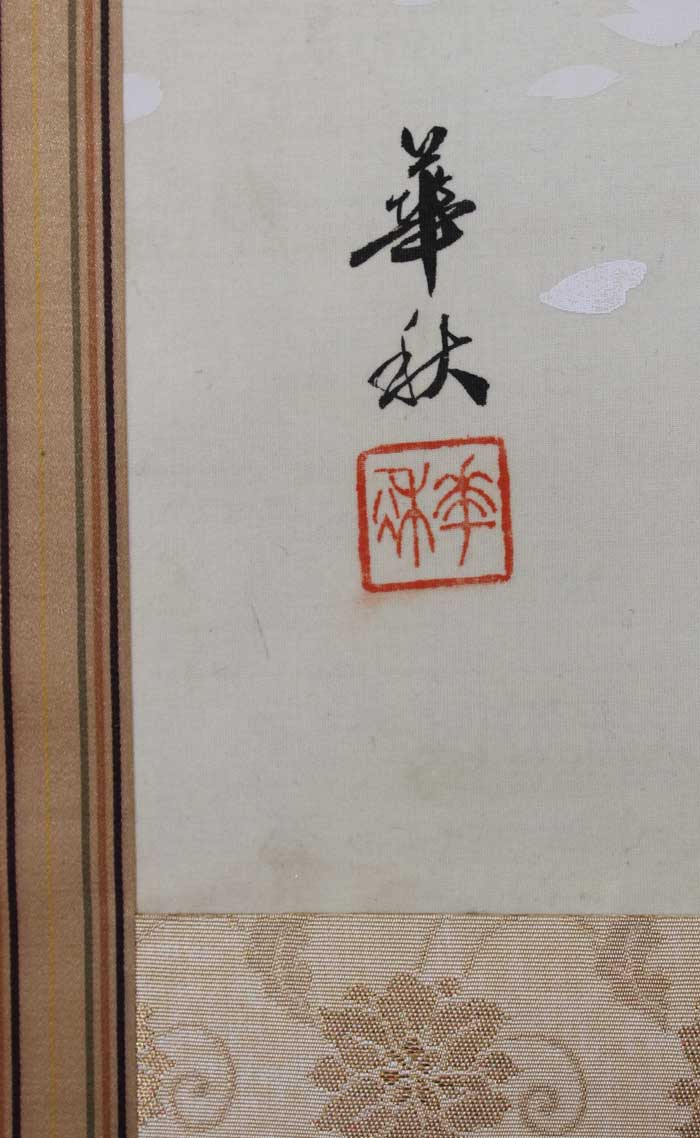 華秋
華秋